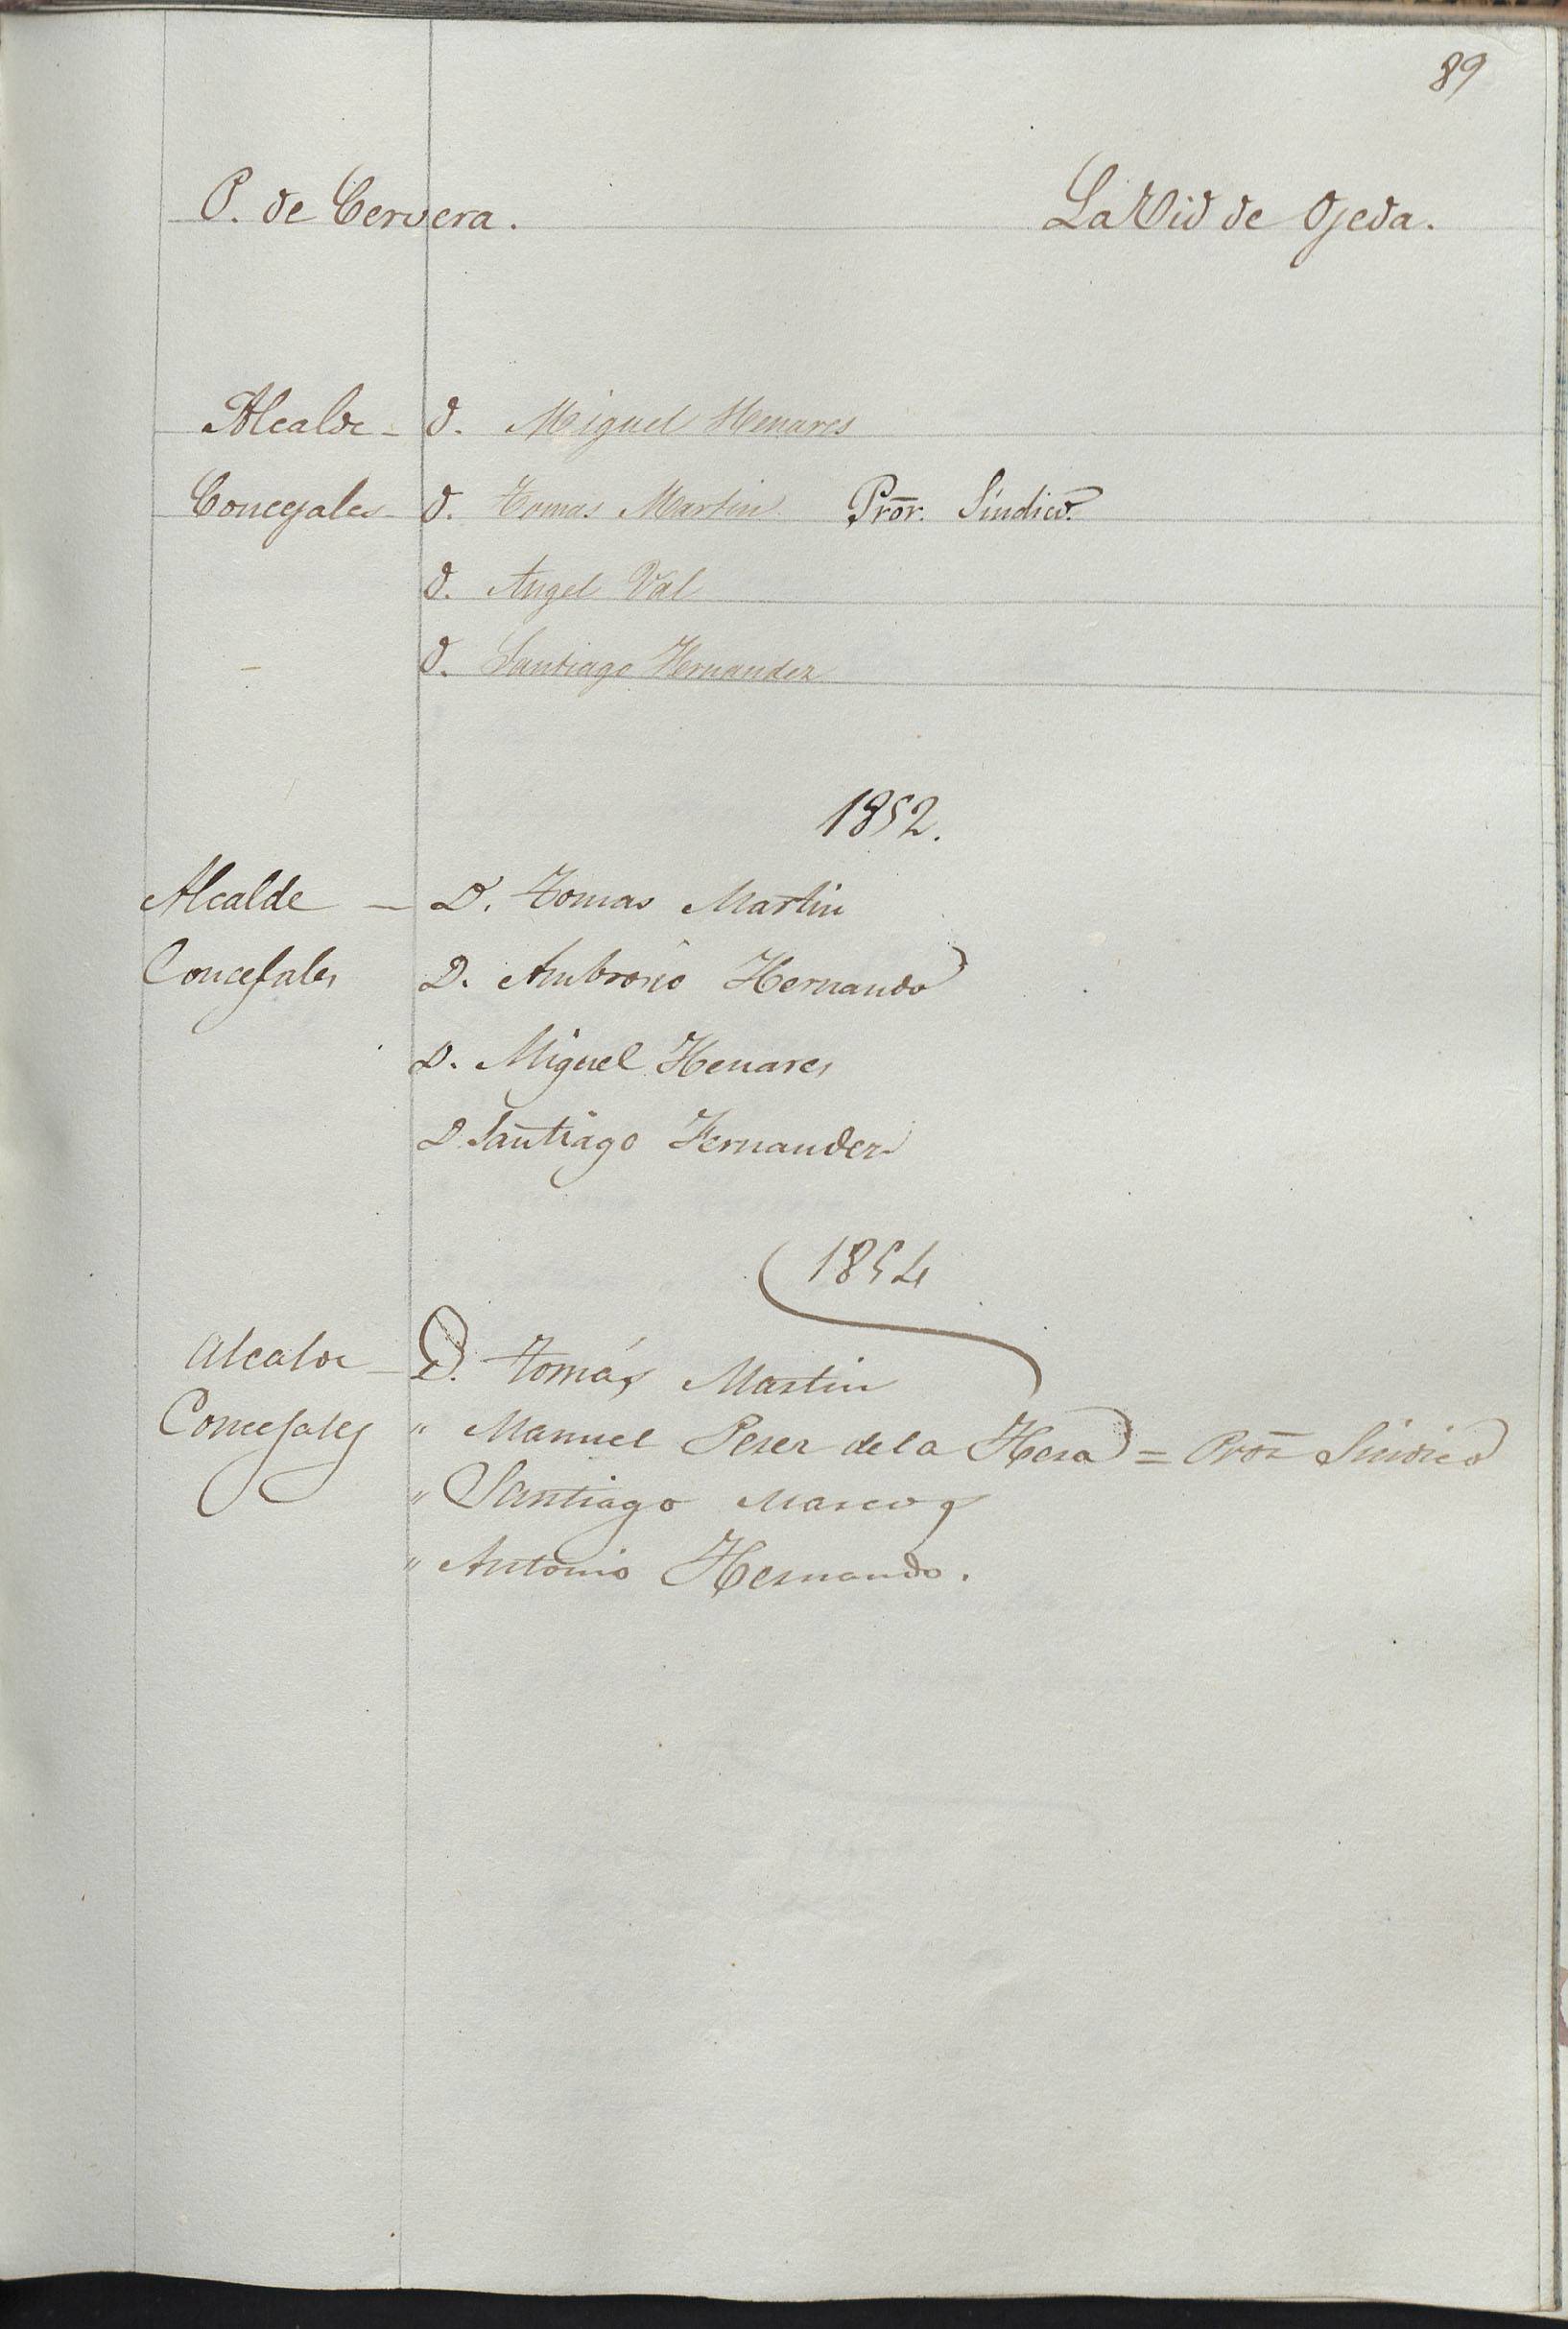 89
P. de Cervera. La Vid de Ojeda.
Alcalde - D. Miguel Henares
Concejales - D. Tomas Martin Pror. Síndico.
D. Angel Val
D. Santiago Hernandez
1852.
Alcalde - D. Tomas Martin
Concejales D. Ambrosio Hernando
D. Miguel Henares
D. Santiago Fernandez
1854
Alcalde - D. Tomás Martin
Concejales " Manuel Perez de la Hera = Pror Sindico
" Santiago Marcos
" Antonio Hernando.